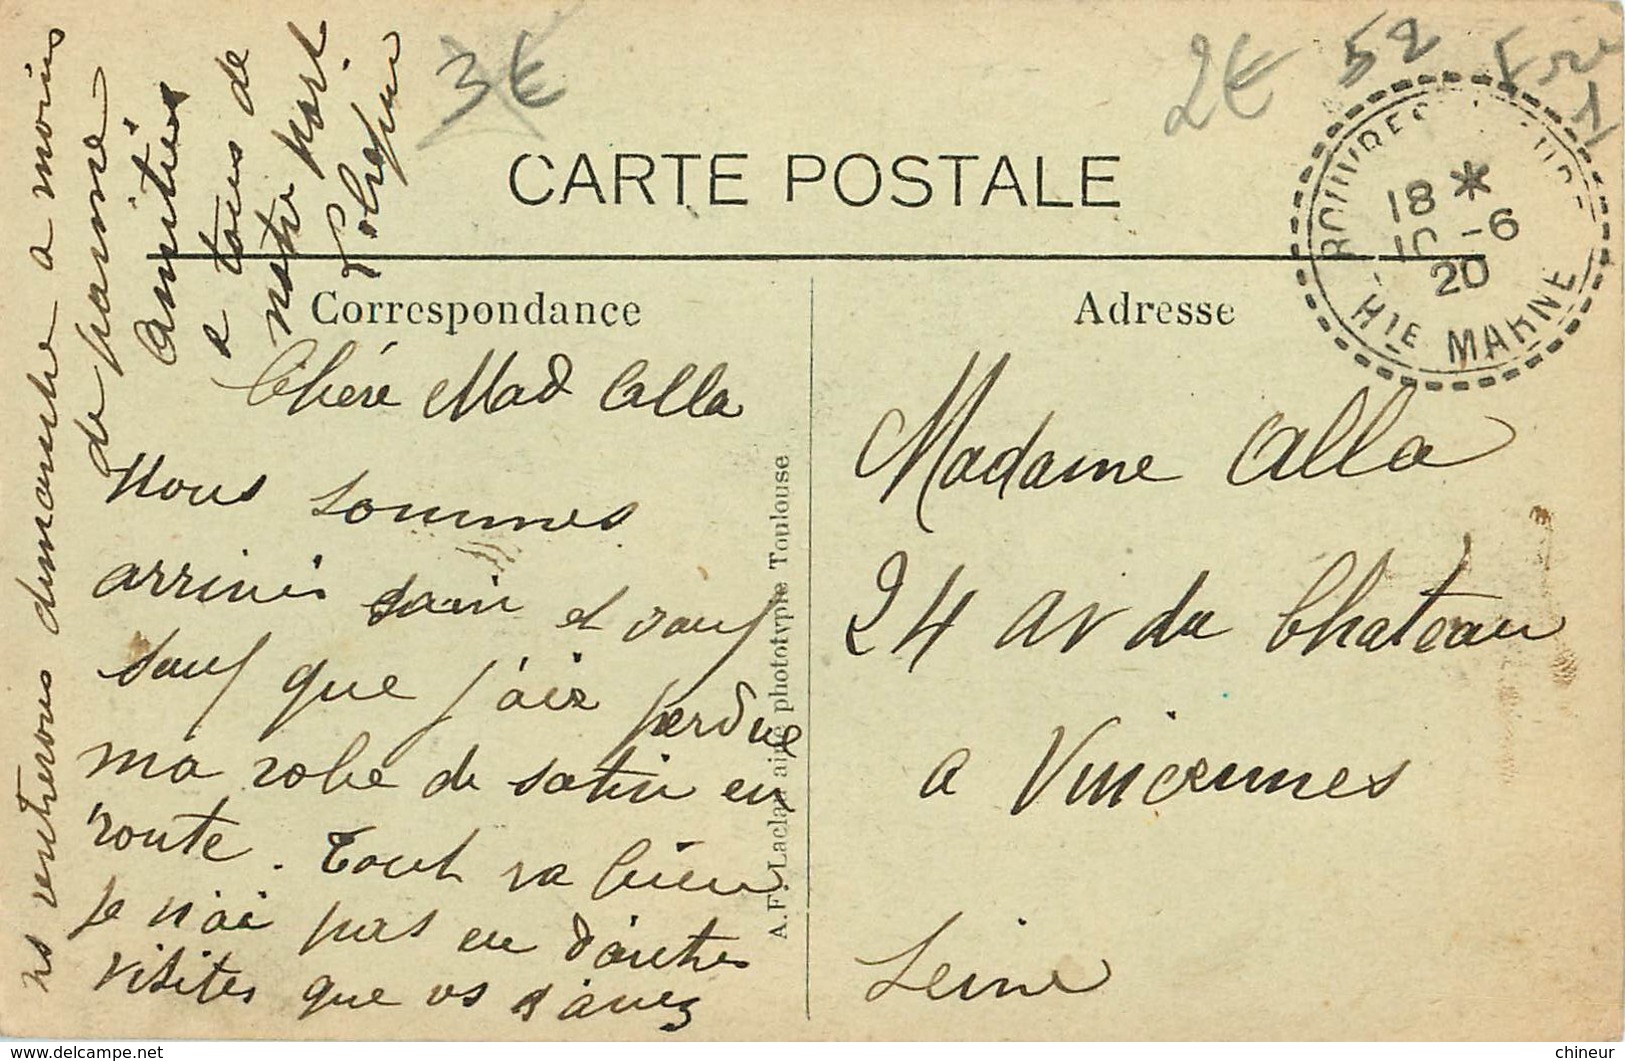 3€
2€ 52
CARTE POSTALE
ROUVRES
18 *
10 -6
20
HTE MARNE
Correspondance
Adresse
Chére Mad Calla
Nous sommes
arrivés sain et sauf
sauf que j'ais perdue
ma robe de satin en
route. Tout va bien
je n'ai pas eu d'autres
visites que vs s avez
ns rentrerons dimanche a moins
de panne
Amitiés
a tous de
notre part
A. F. Laclau aîné phototypie Toulouse
Madame Calla
24 av du Chateau
a Vincennes
Seine
chineur